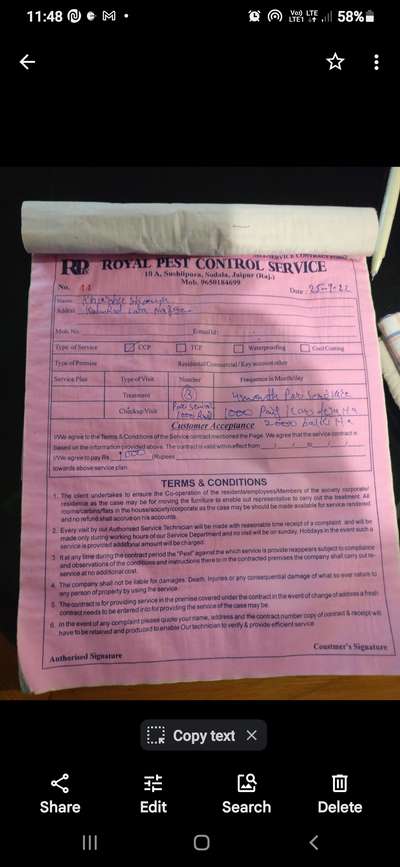 11:48
Vo) LTE
LTE1
58%
SERVICE CONTRACT FORM
RP ROYAL PEST CONTROL SERVICE
10 A, Sushilpura, Sodala, Jaipur (Raj.)
Mob. 9650184699
No. 44
Date : 25-7-22
Name
Address
Mob. No.
E-mail Id :
Type of Service CCP TCP Waterproofing Cool Coating
Type of Premise Residential/Commercial / Key account other
Service Plan Type of Visit Number Frequency in Month/day
Treatment 3 4 month
Checkup Visit 1000 Paid
Customer Acceptance
I/We agree to the Terms & Conditions of the Service contract mentioned the Page. We agree that the service contract is
based on the information provided above. The contract is valid with effect from
I/We agree to pay Rs. 1000 (Rupees
towards above service plan.
TERMS & CONDITIONS
1. The client undertakes to ensure the Co-operation of the residents/employees/Members of the society corporate/
residence as the case may be for moving the furniture to enable out representative to carry out the treatment. All
rooms/certains/flats in the house/society/corporate as the case may be should be made available for service rendered
and no refund shall accrue on his accounts.
2. Every visit by out Authorised Service Technician will be made with reasonable time receipt of a complaint and will be
made only during working hours of our Service Department and no visit will be on sunday, Holidays in the event such a
service is provided additional amount will be charged.
3. If at any time during the contract period the "Pest" against the which service is provide reappears subject to compliance
and observations of the conditions and instructions there to in the contracted premises the company shall carry out re-
service at no additional cost.
4. The company shall not be liable for damages. Death, Injuries or any consequential damage of what so ever nature to
any person of property by using the service.
5. The contract is for providing service in the premise covered under the contract in the event of change of address a fresh
contract needs to be entered into for providing the service of the case may be.
6. In the event of any complaint please quote your name, address and the contract number copy of contract & receipt will
have to be retained and produced to enable Our technician to verify & provide efficient service
Authorised Signature
Coustmer's Signature
Copy text
Share Edit Search Delete